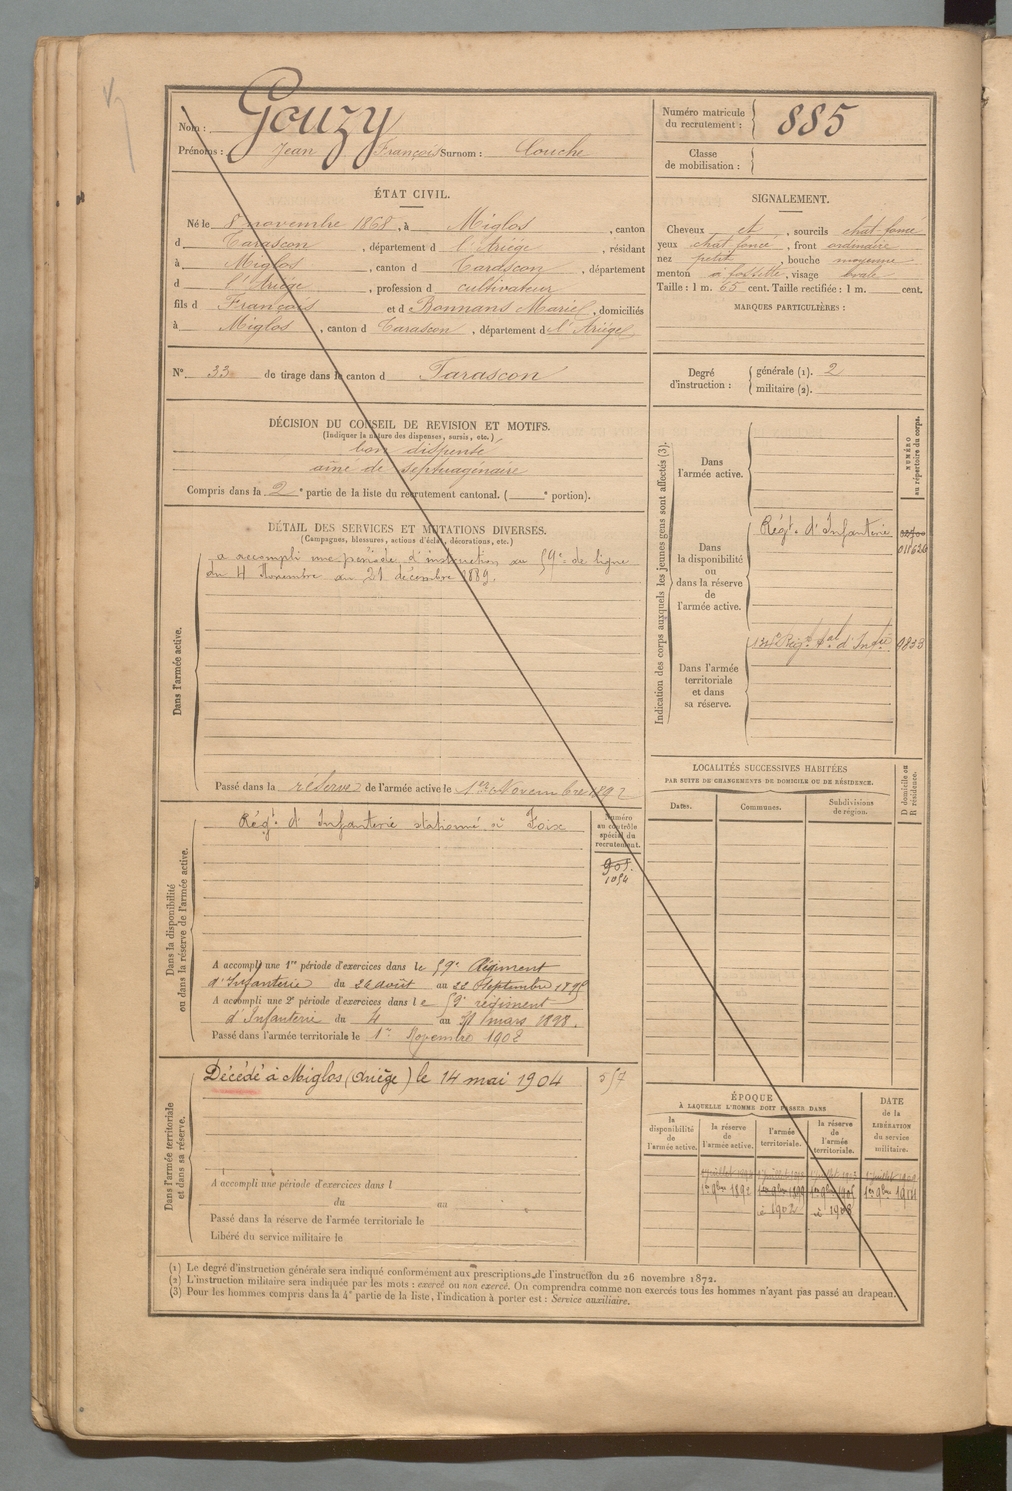 Nom : Gouzy
Prénoms : Jean François Surnom : Couche
Numéro matricule du recrutement : 885
Classe de mobilisation :
ÉTAT CIVIL.
Né le 8 novembre 1868, à Miglos, canton
d Tarascon, département d l'Ariége, résidant
à Miglos, canton d Tarascon, département
d l'Ariége, profession d cultivateur
fils d François et d Bonnans Marie, domiciliés
à Miglos, canton d Tarascon, département d l'Ariége
N° 33 de tirage dans le canton d Tarascon
SIGNALEMENT.
Cheveux et, sourcils chat foncé
yeux chat foncé, front ordinaire
nez petit, bouche moyenne
menton à fossette, visage ovale
Taille : 1 m. 65 cent. Taille rectifiée : 1 m. cent.
MARQUES PARTICULIÈRES :
Degré d'instruction : générale (1). 2
militaire (2).
DÉCISION DU CONSEIL DE REVISION ET MOTIFS.
(Indiquer la nature des dispenses, sursis, etc.)
bon dispensé
ainé de septuagénaire
Compris dans la 2e partie de la liste du recrutement cantonal. ( e portion).
DÉTAIL DES SERVICES ET MUTATIONS DIVERSES.
(Campagnes, blessures, actions d'éclat, décorations, etc.)
Dans l'armée active.
a accompli une période d'instruction au 59e de ligne
du 4 Novembre au 21 décembre 1889.
Passé dans la réserve de l'armée active le 1er Novembre 1892
Indication des corps auxquels les jeunes gens sont affectés (3).
NUMÉRO au répertoire du corps.
Dans l'armée active.
Dans la disponibilité ou dans la réserve de l'armée active.
Régt. d'Infanterie
011626
Dans l'armée territoriale et dans sa réserve.
Régt tal d'Infrie
LOCALITÉS SUCCESSIVES HABITÉES
PAR SUITE DE CHANGEMENTS DE DOMICILE OU DE RÉSIDENCE.
Dates. Communes. Subdivisions de région. D domicile ou R résidence.
Dans la disponibilité ou dans la réserve de l'armée active.
Régt. d'Infanterie stationné à Foix
Numéro au contrôle spécial du recrutement.
905.
1054
A accompli une 1re période d'exercices dans le 59e Régiment
d'Infanterie du 26 août au 22 Septembre 1895
A accompli une 2e période d'exercices dans le 59e régiment
d'Infanterie du 4 au 31 mars 1898.
Passé dans l'armée territoriale le 1er Novembre 1902
Dans l'armée territoriale et dans sa réserve.
Décédé à Miglos (Ariège) le 14 mai 1904
557
A accompli une période d'exercices dans l
du au
Passé dans la réserve de l'armée territoriale le
Libéré du service militaire le
ÉPOQUE
À LAQUELLE L'HOMME DOIT PASSER DANS
la disponibilité de l'armée active.
la réserve de l'armée active.
l'armée territoriale.
la réserve de l'armée territoriale.
DATE de la LIBÉRATION du service militaire.
1er 9bre 1892
à 1902
à 1908
1er 9bre 1914
(1) Le degré d'instruction générale sera indiqué conformément aux prescriptions de l'instruction du 26 novembre 1872.
(2) L'instruction militaire sera indiquée par les mots : exercé ou non exercé. On comprendra comme non exercés tous les hommes n'ayant pas passé au drapeau.
(3) Pour les hommes compris dans la 4e partie de la liste, l'indication à porter est : Service auxiliaire.